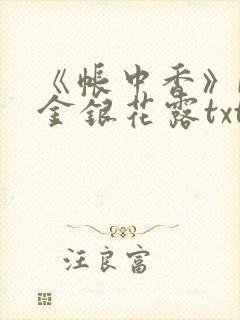 《帐中香》
金银花露txt
汪良富